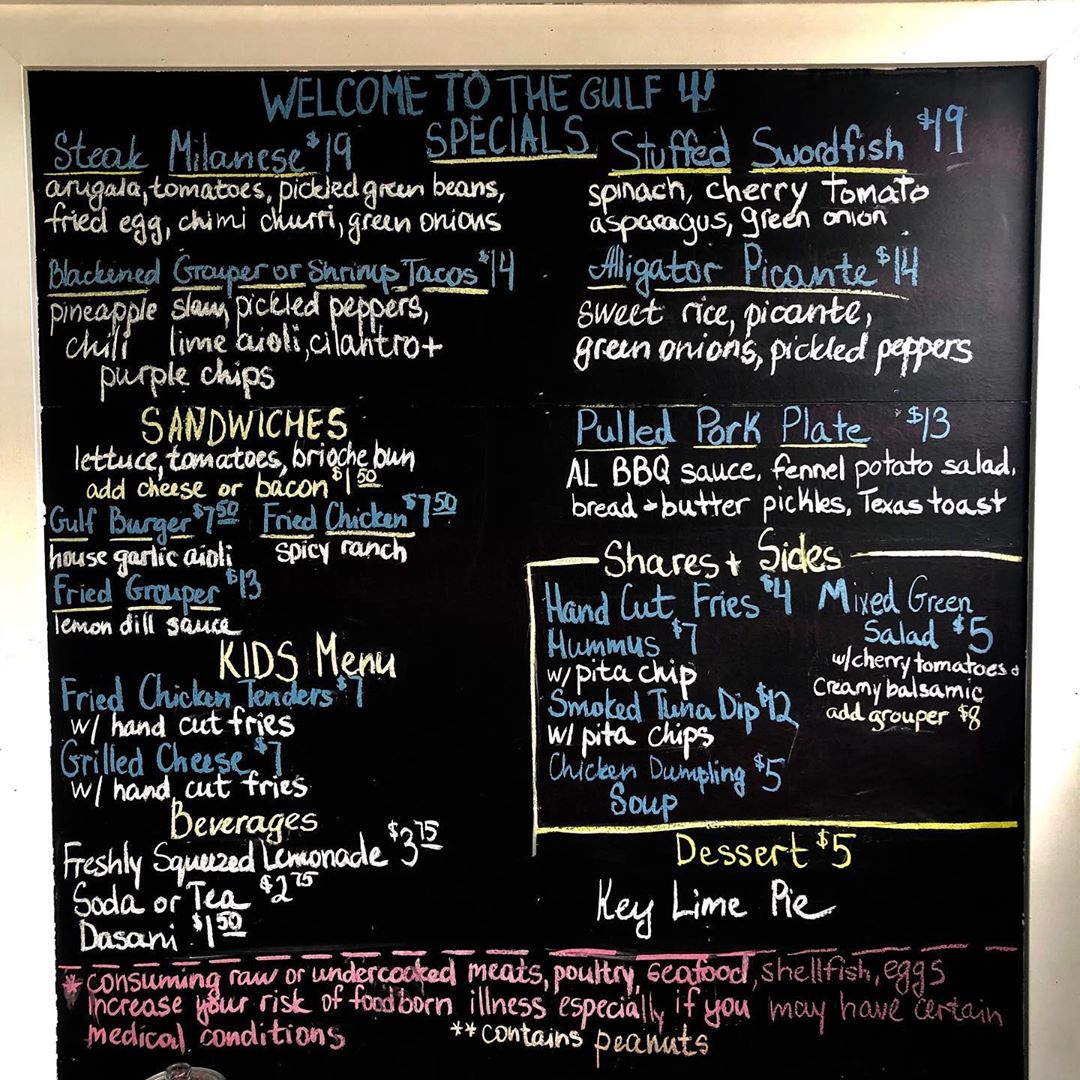 WELCOME TO THE GULF
SPECIALS
Steak Milanese $19
arugala, tomatoes, pickled green beans,
fried egg, chimi churri, green onions
Blackened Grouper or Shrimp Tacos $14
pineapple slaw, pickled peppers,
chili lime aioli, cilantro +
purple chips
Stuffed Swordfish $19
spinach, cherry tomato
asparagus, green onion
Alligator Picante $14
sweet rice, picante,
green onions, pickled peppers
Pulled Pork Plate $13
AL BBQ sauce, fennel potato salad,
bread + butter pickles, Texas toast
SANDWICHES
lettuce, tomatoes, brioche bun
add cheese or bacon $1.50
Gulf Burger $7.50 Fried Chicken $7.50
house garlic aioli spicy ranch
Fried Grouper $13
lemon dill sauce
KIDS Menu
Fried Chicken Tenders $7
w/ hand cut fries
Grilled Cheese $7
w/ hand cut fries
Beverages
Freshly Squeezed Lemonade $3.75
Soda or Tea $2.75
Dasani $1.50
Shares + Sides
Hand Cut Fries $4
Hummus $7
w/ pita chip
Smoked Tuna Dip $12
w/ pita chips
Chicken Dumpling $5
Soup
Mixed Green
Salad $5
w/cherry tomatoes +
creamy balsamic
add grouper $8
Dessert $5
Key Lime Pie
* consuming raw or undercooked meats, poultry, seafood, shellfish, eggs
increase your risk of foodborn illness especially if you may have certain
medical conditions **contains peanuts